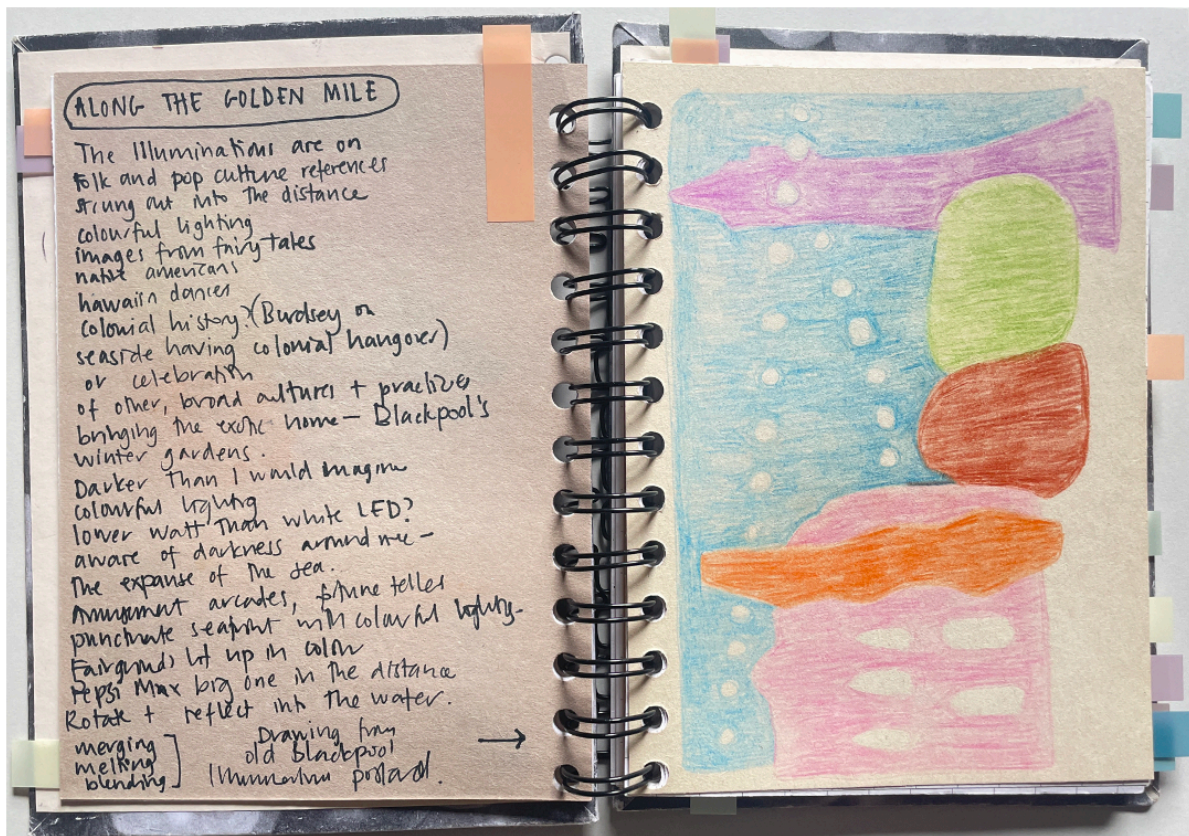 ALONG THE GOLDEN MILE
The Illuminations are on
folk and pop culture references
strung out into the distance
colourful lighting
images from fairytales
native americans
hawaiin dances
colonial history? (Burdsey on
seaside having colonial hangover)
or celebration
of other, broad cultures + practices
bringing the exotic home – Blackpool's
winter gardens.
Darker than I would imagine
colourful lighting
lower watt than white LED?
aware of darkness around me –
the expanse of the sea.
Amusement arcades, fortune teller
punctuate seafront with colourful lights.
Fairgrounds lit up in colour
Pepsi Max big one in the distance
Rotate + reflect into the water.
merging
melting
blending
Drawing from
old Blackpool
Illumination postcard.